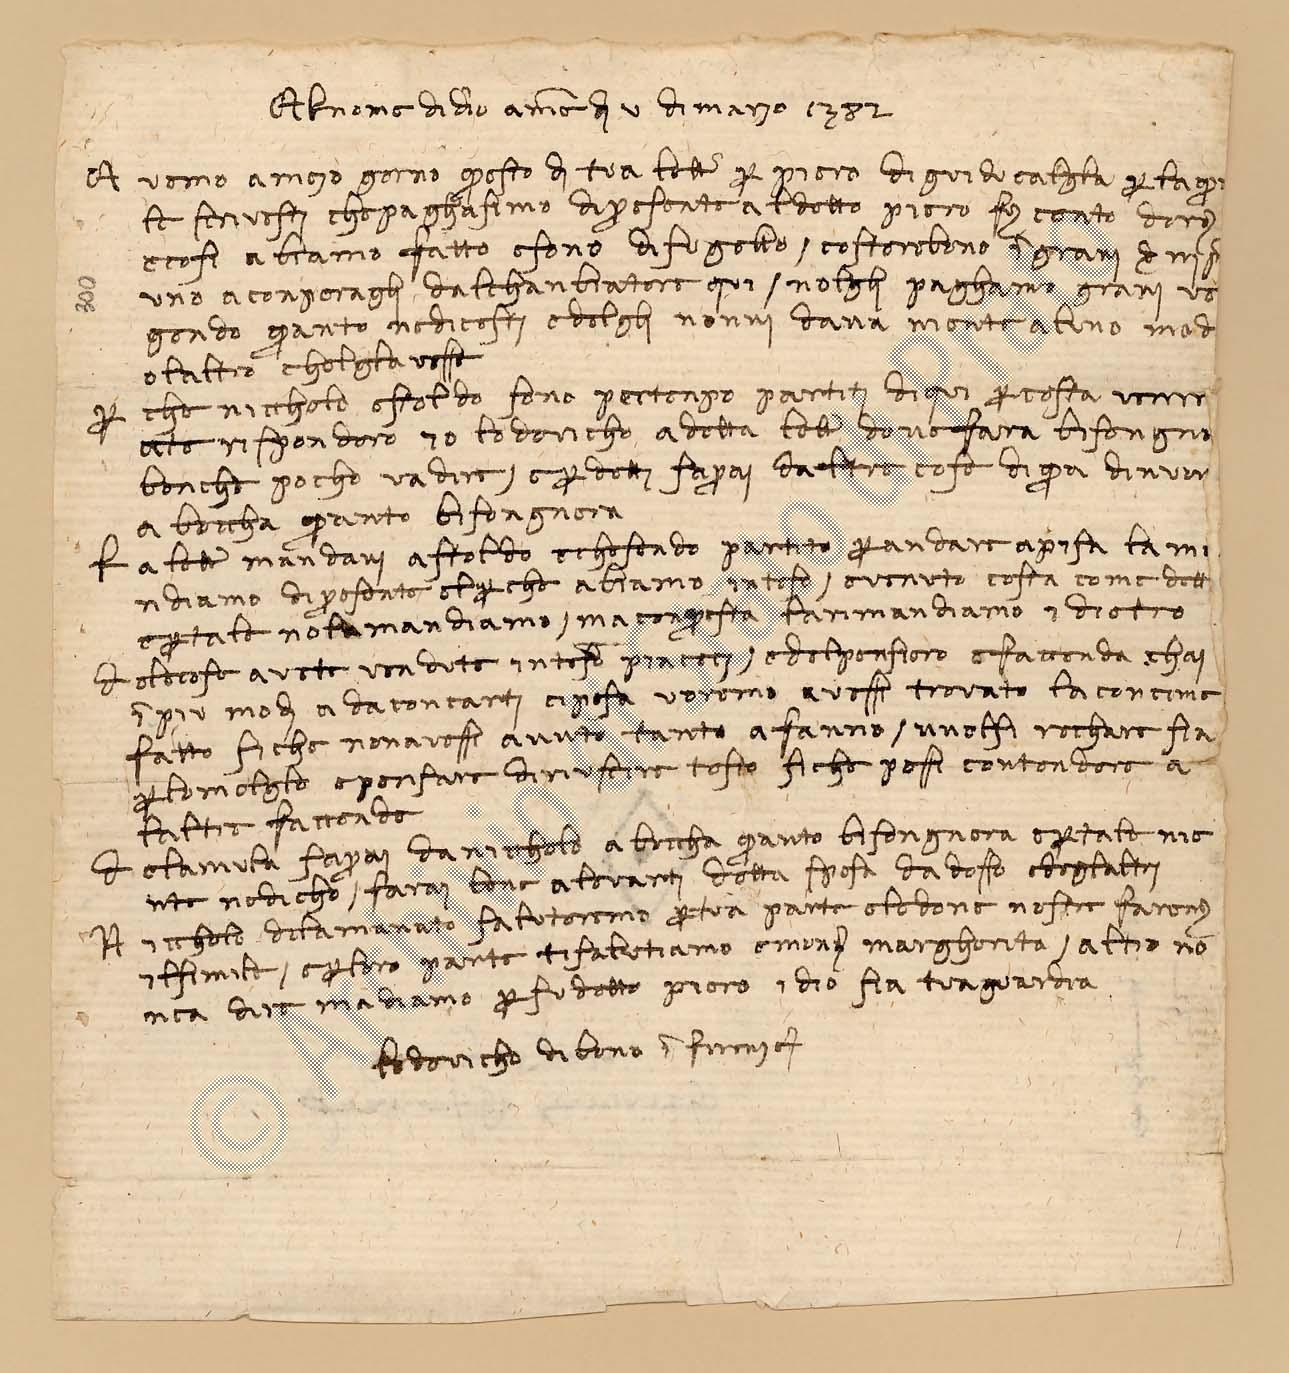 Al nome di dio amē dì v di marzo 1382
Avemo a mezo gorno questo dì tua letta per piero di guido calzla per la qua
le scrivesti che paghasimo di presente al detto piero fio cento d'oro
e cosi abiamo fatto e sono di sugello / costerebono i gravi
uno a conperagli dal chanbiatore qui / no gli paghamo gravi ve
gendo quanto ne dicesti ed elgli non vi dava niente a luno mod
o laltro che lgla vesse
Per che niccholo e stoldo sono per tenpo partiti di qui per costa venire
ate rispondero io lodovicho a detta letta dove fara bisongno
benche pocho va dire / e per detti saprai dallre cose di qua dinver
a boccha quanto bisongnera
La letta mandavi a stoldo e chesendo partito per andare a pisa la ma
ndiamo di presente e perche abiamo inteso / e venuto costa come dett
e per tale no la mandiamo / ma con questa la rimandiamo i dietro
De le cose avete vendute inteso piaceci / e del pensiero e facenda chai
i piu modi a daconcarti ci pesa voremo avessi trovato laconcime
fatto si che non avessi avuto tanto afanno / vuolsi rechare sia
per lo melglo e pensare di riuscire tosto si che possi contendere a
laltre faccende
De la mula saprai da niccholo a boccha quanto bisongnera e per tale nie
nte ne dicho / farai bene a levarti detta spesa da dosso e degl altri
Niccholo de lamanato saluteremo per tua parte e le done nostre faremo
il simile / e per loro parte ti salutiamo e mona margherita / altro nō
nca dire ma diamo per su detto piero idio sia tua guardia
lodovicho di bono i firenze
300
© Archivio di Stato di Prato